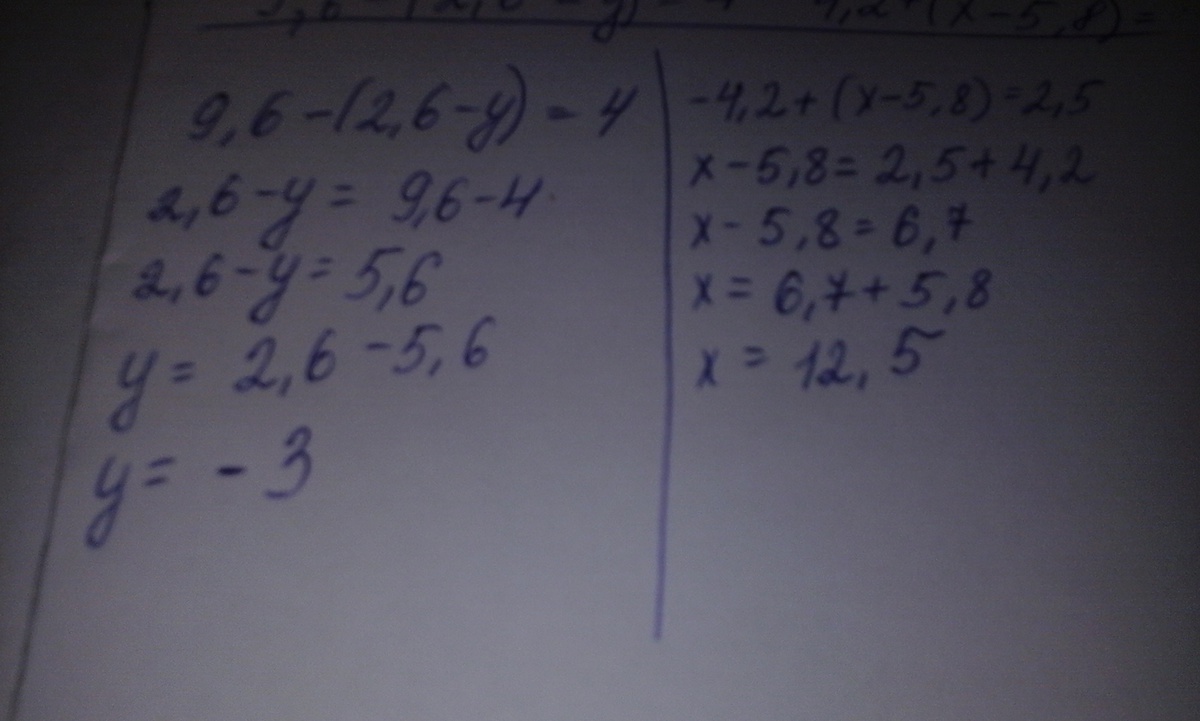 4,2+(x-5,8)=
9,6-(2,6-y)=4
2,6-y= 9,6-4
2,6-y=5,6
y= 2,6-5,6
y= -3
-4,2+(x-5,8)=2,5
x-5,8=2,5+4,2
x-5,8=6,7
x=6,7+5,8
x=12,5